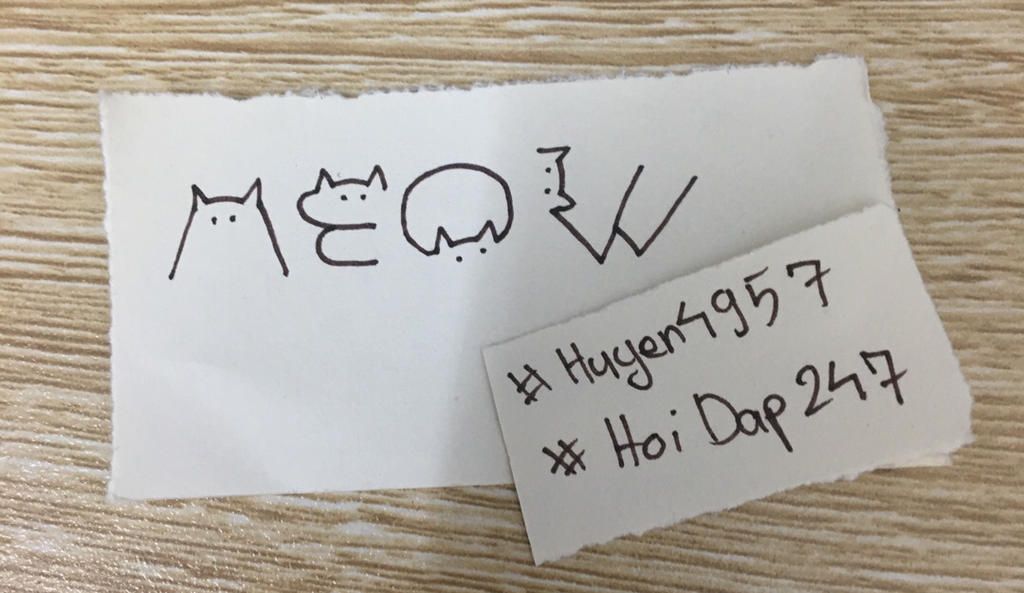 MEOW
# Huyen4957
# Hoi Dap 247